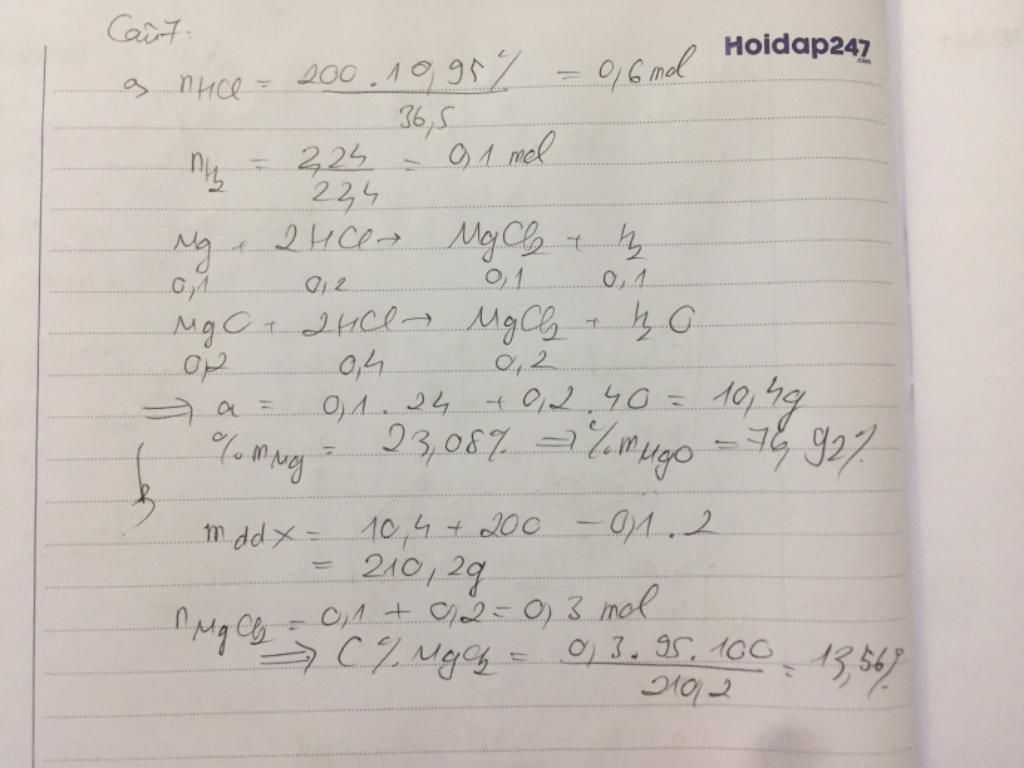 Câu 7:
Hoidap247
.com
a, nHCl = 200.10,95% / 36,5 = 0,6 mol
nH2 = 2,24 / 22,4 = 0,1 mol
Mg + 2HCl → MgCl2 + H2
0,1 0,2 0,1 0,1
MgO + 2HCl → MgCl2 + H2O
0,2 0,4 0,2
⇒ a = 0,1.24 + 0,2.40 = 10,4g
%mMg = 23,08% ⇒ %mMgO = 76,92%
b,
mddX = 10,4 + 200 - 0,1.2
= 210,2g
nMgCl2 = 0,1 + 0,2 = 0,3 mol
⇒ C% MgCl2 = 0,3.95.100 / 210,2 = 13,56%